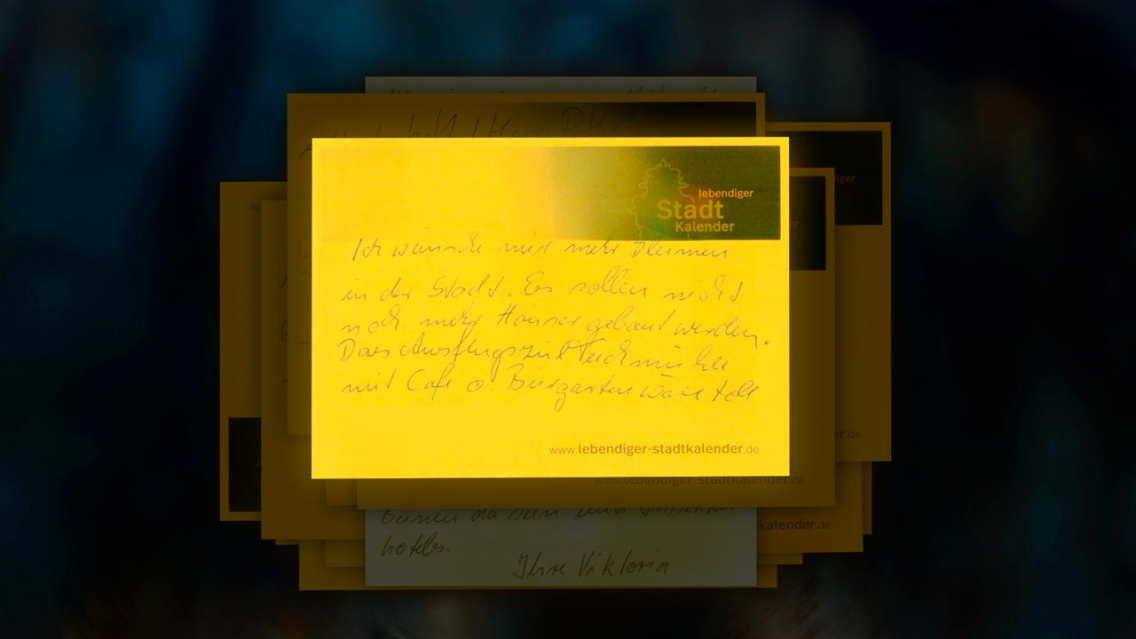 lebendiger
Stadt
Kalender
Ich wünsche mir mehr Blumen
in der Stadt. Es sollen nicht
noch mehr Häuser gebaut werden.
Das Ausflugsziel Teichmühle
mit Cafe o. Biergarten wäre toll
www.lebendiger-stadtkalender.de
www.lebendiger-stadtkalender.de
kalender.de
hotels.
Ihre Viktoria